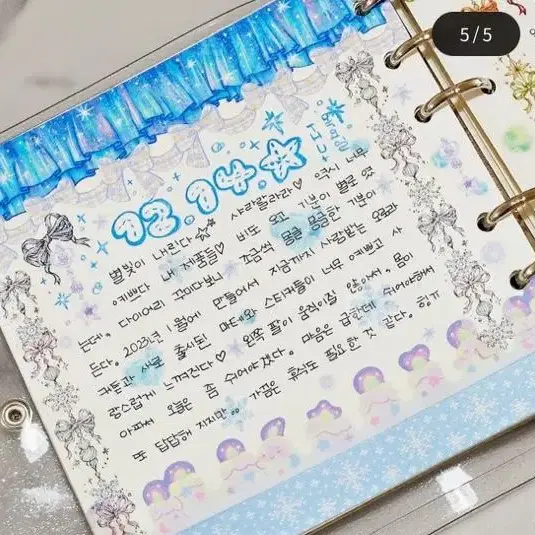 5/5
12.14.
별빛이 내린다☆☆ 샤라랄라라♡ 역시 너무
이쁘다 내 제품들♡ 비도 오고 기분이 별로 였
는데, 다이어리 꾸미다보니 조금씩 몽글 몽글한 기분이
든다. 2023년 1월에 만들어서 지금까지 사랑받는 오로라
커튼과 새로 출시된 마테와 스티커들이 너무 이쁘고 사
랑스럽게 느껴진다♡ 왼쪽 팔이 움직이질 않아서, 몸이
아파서 오늘은 좀 쉬어야겠다. 마음은 급한데 쉬어야해서
또 답답해 지지만.. 가끔은 휴식도 필요한 것 같다. 힝구